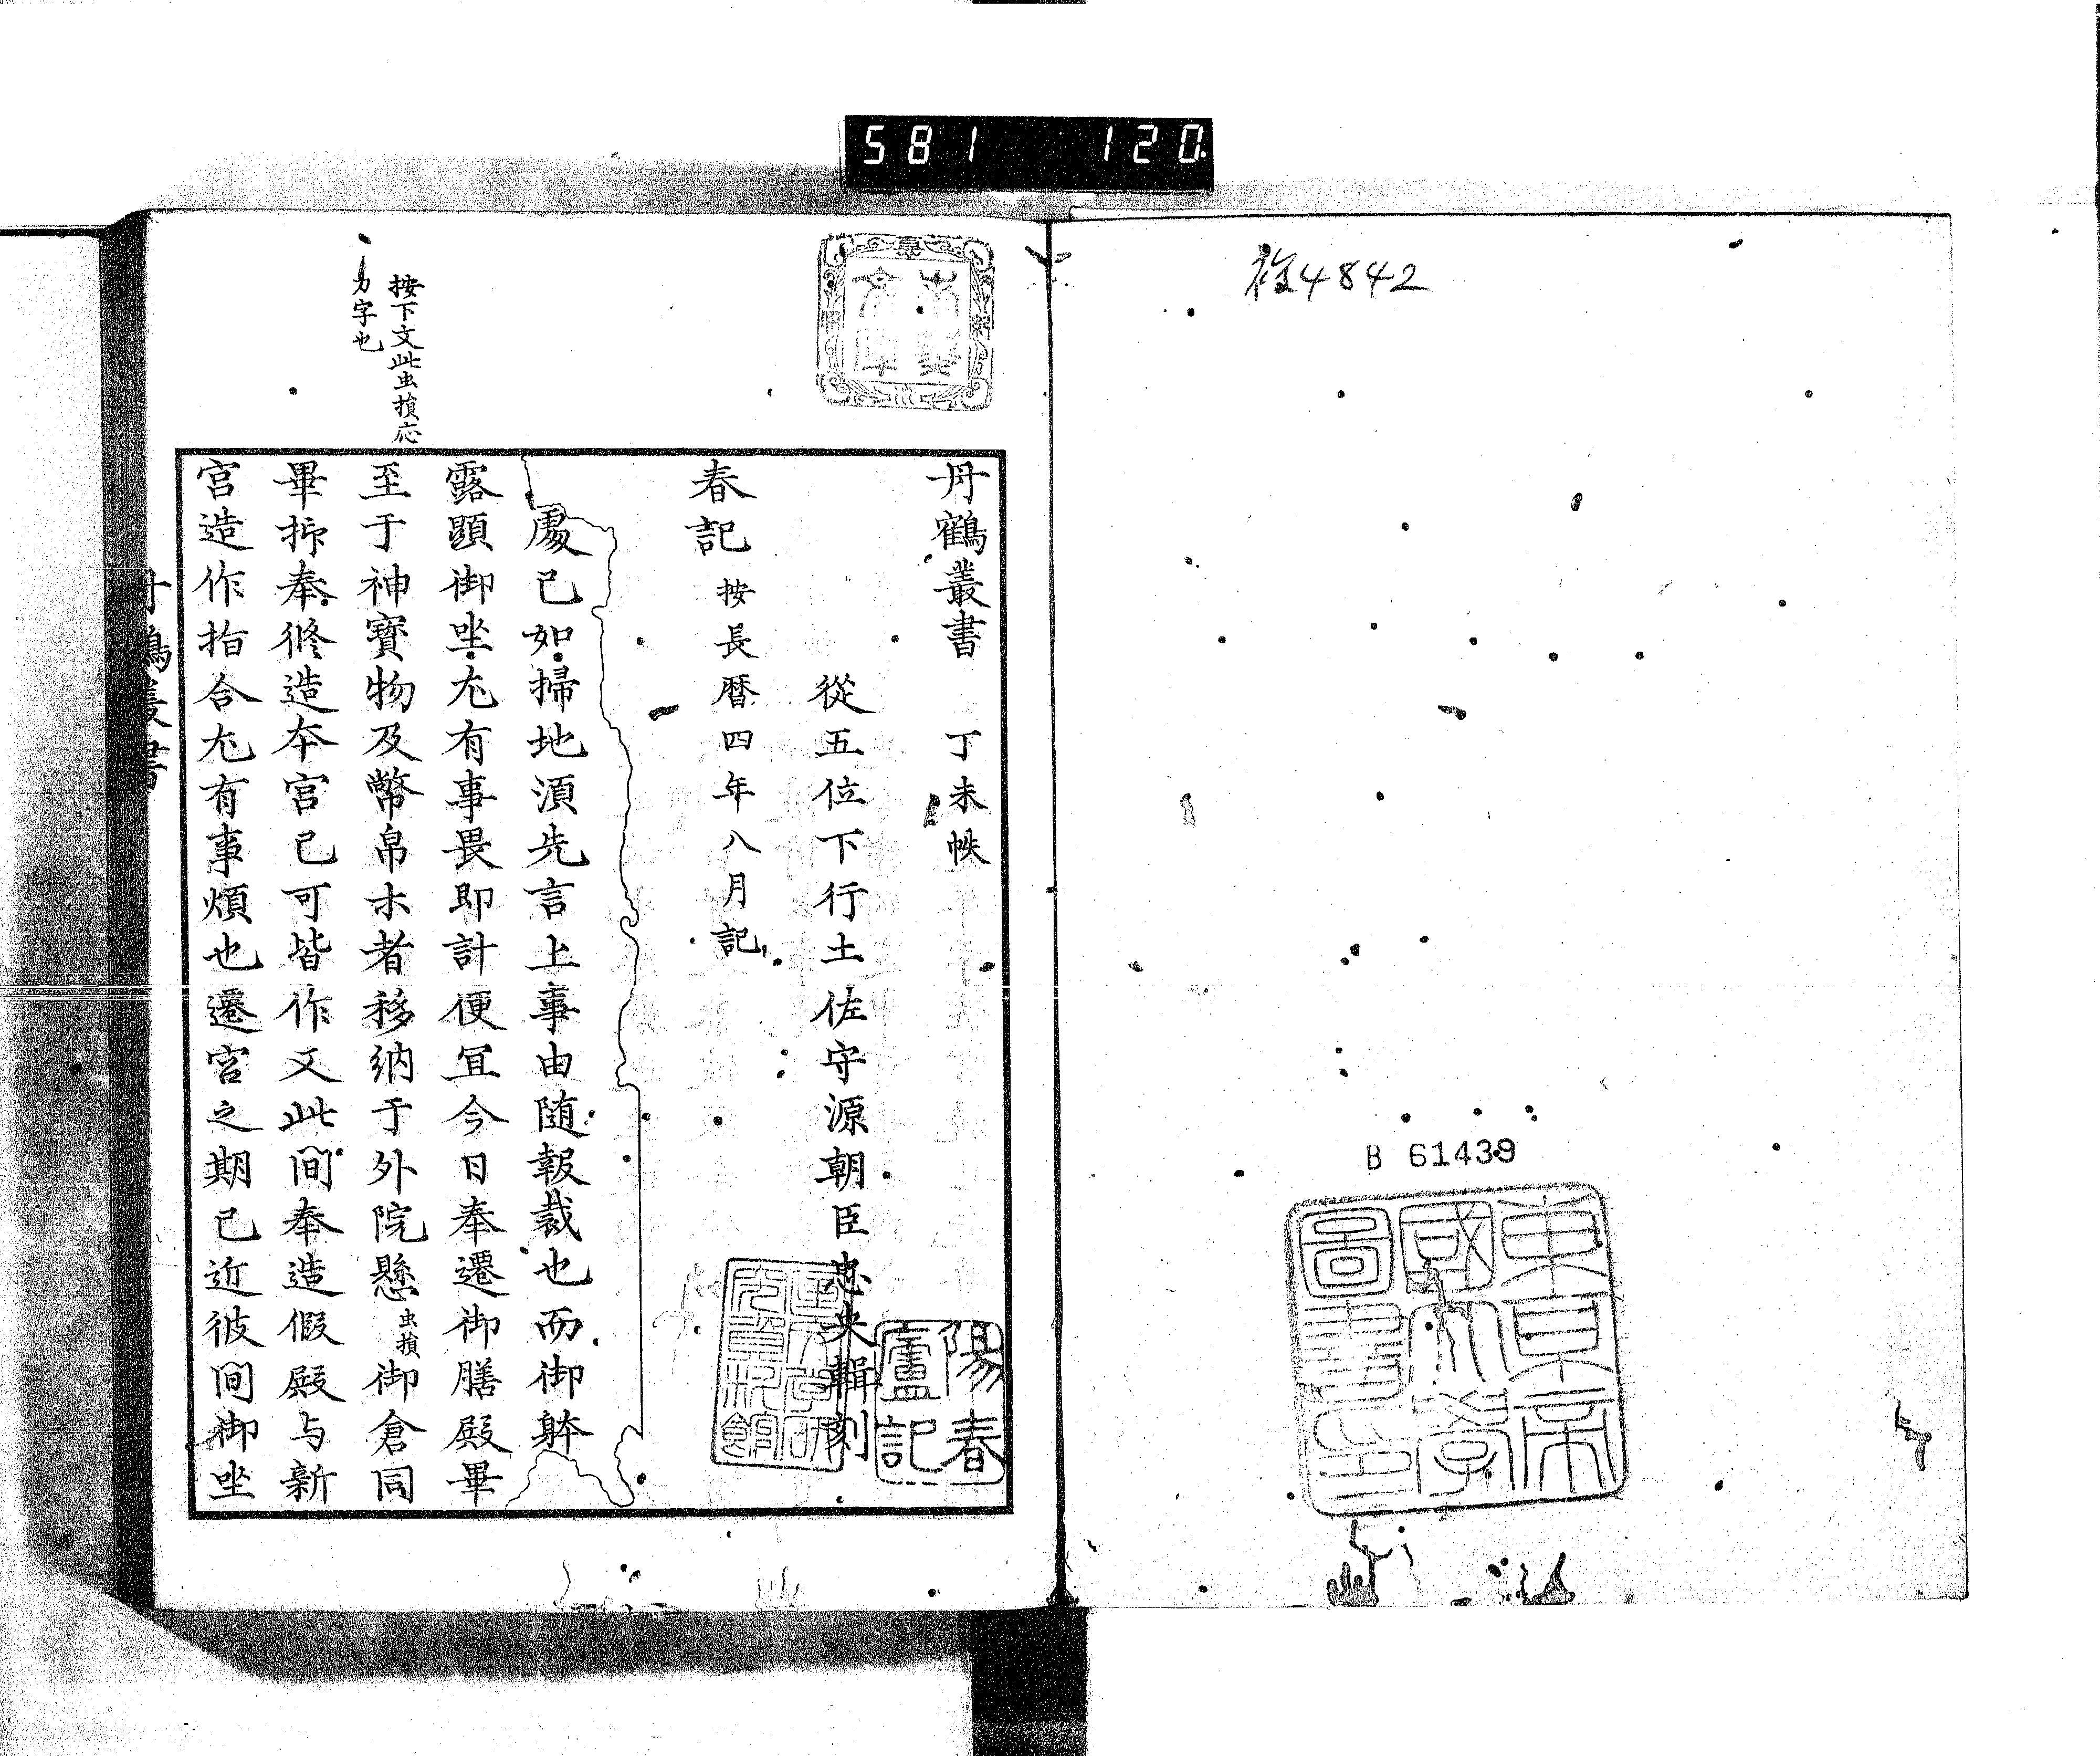 581 120
複4842
B 61439
東京帝
國大學
圖書印
丹鶴叢書 丁未帙
從五位下行土佐守源朝臣忠央輯刻
陽春
廬記
春記 按長曆四年八月記
處已如掃地湏先言上事由随報裁也而御躰
露顕御坐尤有事畏即計便冝今日奉遷御膳殿畢
至于神寳物及幣帛木者移納于外院懸 虫損 御倉同
畢抑奉修造夲宮已可皆作又此間奉造假殿与新
宮造作指合尤有事煩也遷宮之期已近彼間御坐
按下文此虫損応
力字也
丹鶴叢書